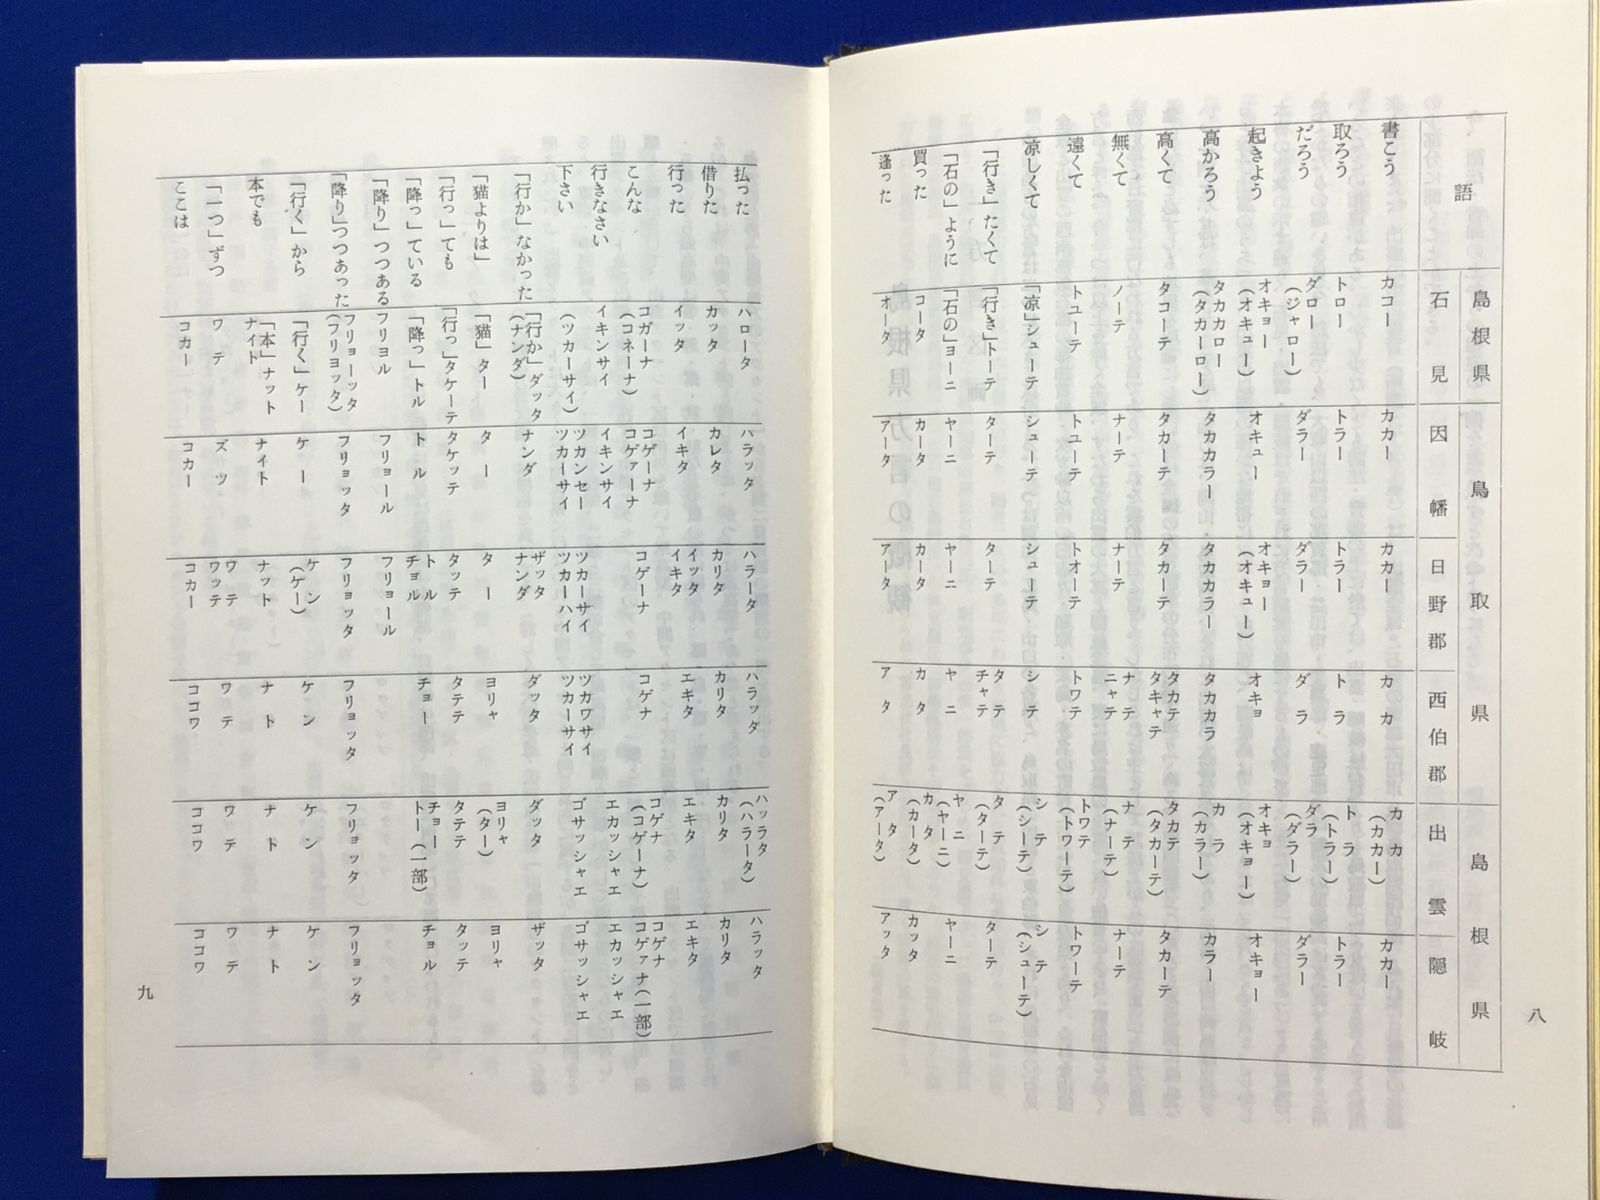 八
島根県　鳥取県　島根県
語　石見　因幡　日野郡　西伯郡　出雲　隠岐
書こう　カコー　カカー　カカー　カカ　カカ（カカー）　カカー
取ろう　トロー　トラー　トラー　トラ　トラ（トラー）　トラー
だろう　ダロー（ジャロー）　ダラー　ダラー　ダラ　ダラ（ダラー）　ダラー
起きよう　オキョー（オキュー）　オキュー　オキョー（オキュー）　オキョ　オキョ（オキョー）　オキョー
高かろう　タカカロー（タカーロー）　タカカラー　タカカラー　タカカラ　カラ（カラー）　カラー
高くて　タコーテ　タカーテ　タカーテ　タカテ　タキャテ　タカテ（タカーテ）　タカーテ
無くて　ノーテ　ナーテ　ナーテ　ナテ　ニャテ　ナテ（ナーテ）　ナーテ
遠くて　トユーテ　トユーテ　トオーテ　トワテ　トワテ（トワーテ）　トワーテ
凉しくて　「凉」シューテ　シューテ　シューテ　シテ　シテ（シーテ）　シテ（シューテ）
「行き」たくて　「行き」トーテ　ターテ　ターテ　タテ　チャテ　タテ（ターテ）　ターテ
「石の」ように　「石の」ヨーニ　ヤーニ　ヤーニ　ヤニ　ヤニ（ヤーニ）　ヤーニ
買った　コータ　カータ　カータ　カタ　カタ（カータ）　カッタ
逢った　オータ　アータ　アータ　アタ　アタ（アータ）　アッタ
払った　ハロータ　ハラッタ　ハラータ　ハラッタ　ハッラタ（ハラータ）　ハラッタ
借りた　カッタ　カレタ　カリタ　カリタ　カリタ　カリタ
行った　イッタ　イキタ　イッタ　イキタ　エキタ　エキタ　エキタ
こんな　コガーナ（コネーナ）　コゲーナ　コゲァーナ　コゲーナ　コゲナ　コゲナ（コゲーナ）　コゲナ　コゲァナ（一部）
行きなさい　イキンサイ　イキンサイ　エカッシャエ　エカッシャエ
下さい　（ツカーサイ）　ツカンセー　ツカーサイ　ツカーサイ　ツカーハイ　ツカワサイ　ツカーサイ　ゴサッシャエ　ゴサッシャエ
「行か」なかった　「行か」ダッタ（ナンダ）　ナンダ　ザッタ　ナンダ　ダッタ　ダッタ　ザッタ
「猫よりは」　「猫」ター　ター　ター　ヨリャ　ヨリャ（ター）　ヨリャ
「行っ」ても　「行っ」タケーテ　タケッテ　タッテ　タテテ　タテテ　タッテ
「降っ」ている　「降っ」トル　トル　トル　チョル　チョー　チョー　トー（一部）　チョル
「降り」つつある　フリヨル　フリョール　フリョール
「降り」つつあった　フリョーッタ（フリヨッタ）　フリョッタ　フリョッタ　フリョッタ　フリョッタ　フリョッタ
「行く」から　「行く」ケー　ケー　ケン（ケー）　ケン　ケン　ケン
本でも　「本」ナット　ナイト　ナイト　ナット　ナト　ナト　ナト
「一つ」ずつ　ワテ　ズツ　ワテ　ワッテ　ワテ　ワテ　ワテ
ここは　コカー　コカー　コカー　ココワ　ココワ　ココワ
九